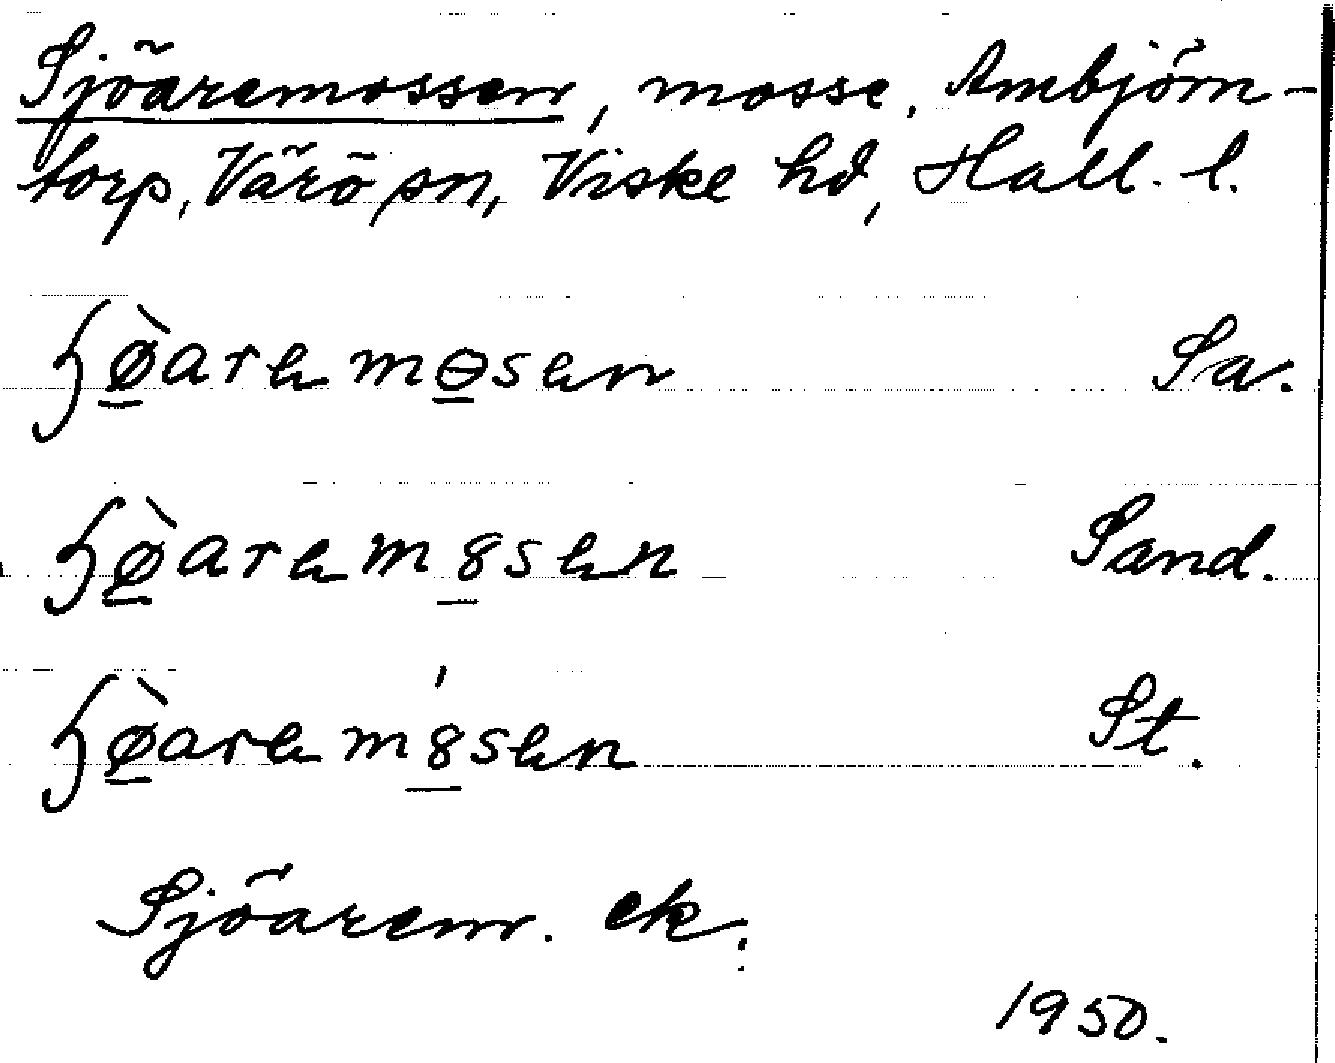 Sjöaremossen, mosse, Ambjörn-
torp, Värö sn, Viske hd, Hall. l.
ɧø̠̀arəmɵ̠sən Sa.
ɧø̠̀arəm8̠sən Sand.
ɧø̠̀arəm8̠́sən St.
Sjöarem. ek.
1950.